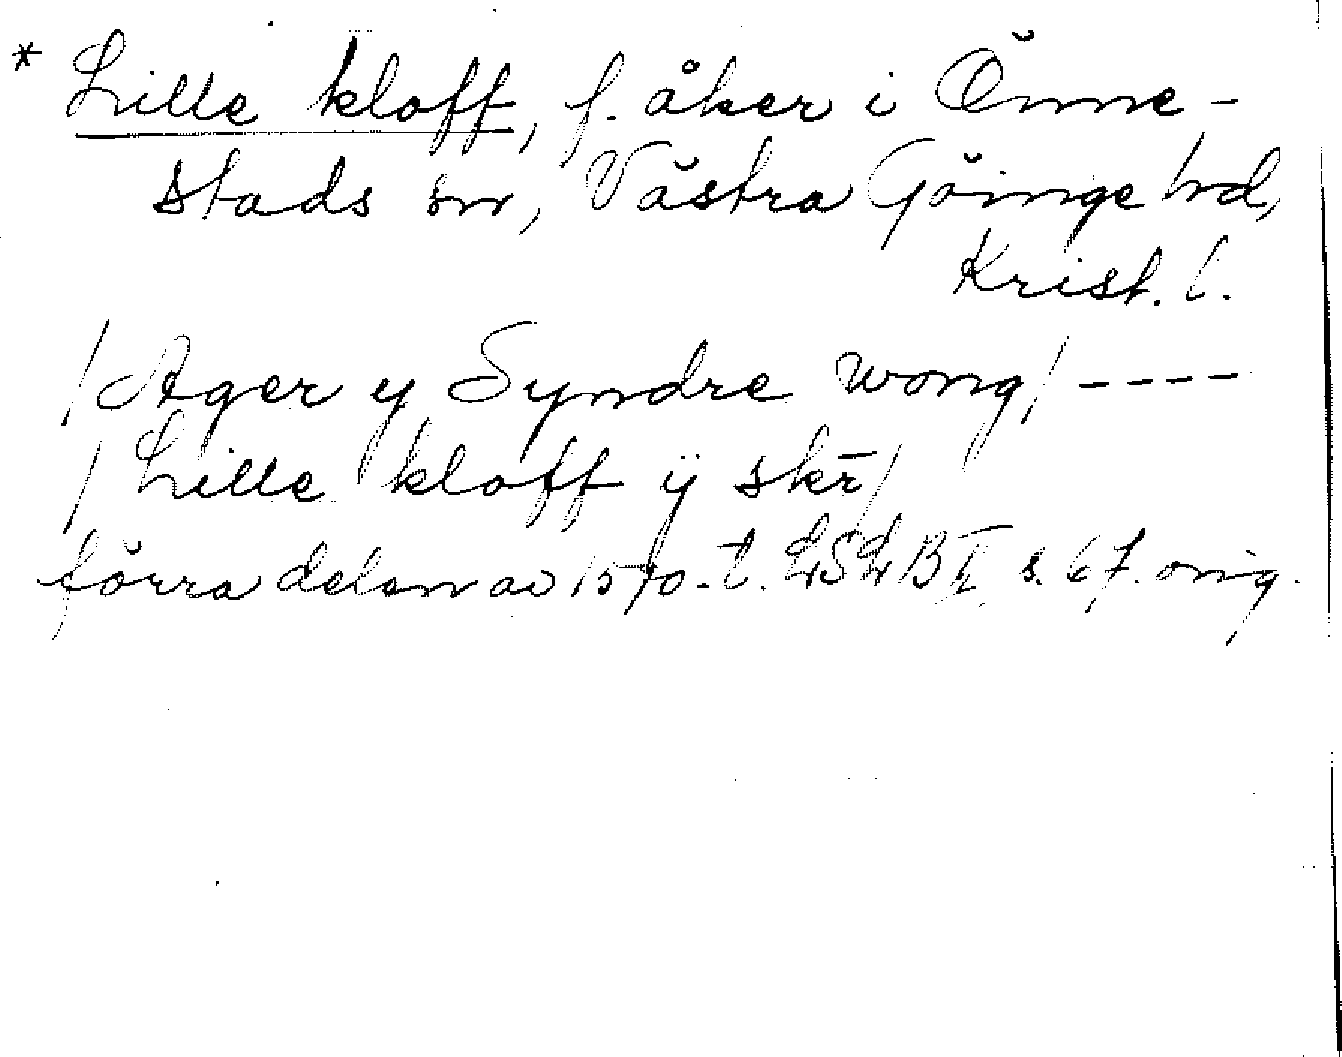 * Lille kloff, f. åker i Önne-
stads sn, Västra Göinge hd,
Krist. l.
/Ager y Syndre wong/ ----
/Lille kloff ÿ skr̄/
förra delen av 1570-t. LSL B II s. 67. orig.